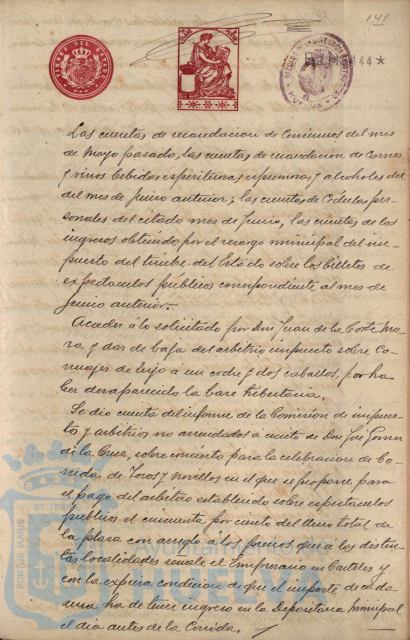 141
TIMBRE DEL ESTADO
Las cuentas de recaudacion de Consumos del mes
de Mayo pasado, las cuentas de recaudacion de Carnes
y vinos bebidas espirituosas espumosas y alcoholes del
del mes de Junio anterior; las cuentas de Cédulas per-
sonales del citado mes de Junio, las cuentas de los
ingresos obtenidos por el recargo municipal del im-
puesto del timbre del Estado sobre los billetes de
espectaculos públicos correspondiente al mes de
Junio anterior.
Acceder á lo solicitado por Don Juan de la Corte Mo-
ra y dar de baja del arbitrio impuesto sobre Ca-
rruajes de lujo á un coche y dos caballos, por ha-
ber desaparecido la base tributaria.
Se dió cuenta del informe de la Comisión de impues-
tos y arbitrios no arrendados á escrito de Don José Gomez
de la Cruz, sobre concierto para la celebracion de Co-
rridas de Toros y Novillos en el que se propone para
el pago del arbitrio establecido sobre espectaculos
públicos el cincuenta por ciento del lleno total de
la plaza con arreglo á los precios que a las distin-
tas localidades señale el Empresario en Carteles y
con la expresa condicion de que el importe de cada
una ha de tener ingreso en la Depositaria Municipal
el dia antes de la Corrida.